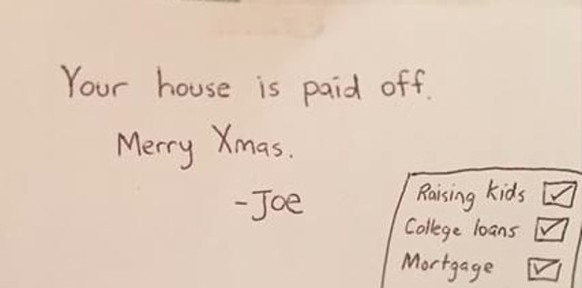 Your house is paid off.
Merry Xmas.
-Joe
Raising kids ☑
College loans ☑
Mortgage ☑